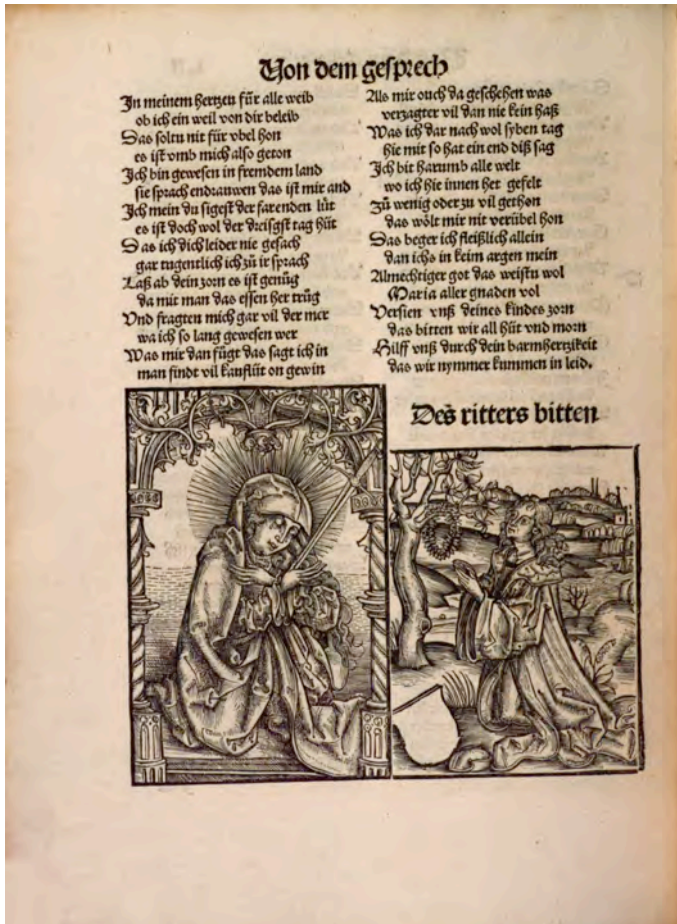 Von dem gesprech
In meinem hertzen für alle weib
ob ich ein weil von dir beleib
Das soltu nit für vbel hon
es ist vmb mich also geton
Ich bin gewesen in fremdem land
sie sprach endrauwen das ist mir and
Ich mein du sigest der farenden lüt
es ist doch wol der dreisgst tag hüt
Das ich dich leider nie gesach
gar tugentlich ich zů ir sprach
Laß ab dein zorn es ist genůg
da mit man das essen her trůg
Vnd fragten mich gar vil der mer
wa ich so lang gewesen wer
Was mir dan fügt das sagt ich in
man findt vil kauflüt on gewin
Als mir ouch da geschehen was
verzagter vil dan nie kein haß
Was ich dar nach wol syben tag
hie mit so hat ein end diß sag
Ich bit harumb alle welt
wo ich hie innen het gefelt
Zů wenig oder zu vil gethon
das wölt mir nit verübel hon
Das beger ich fleißlich allein
dan ichs in keim argen mein
Almechtiger got das weistu wol
Maria aller gnaden vol
Versien vnß deines kindes zorn
das bitten wir all hüt vnd morn
Hilff vnß durch dein barmhertzikeit
das wir nymmer kummen in leid.
Des ritters bitten